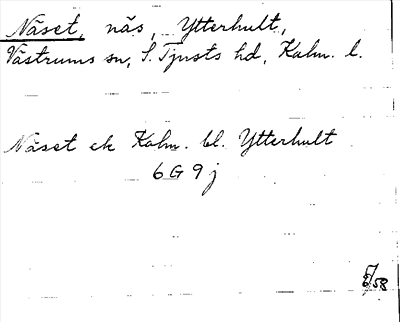 Näset, näs, Ytterhult,
Västrums sn, S. Tjusts hd, Kalm. l.
Näset ek Kalm. bl. Ytterhult
6G9j
58